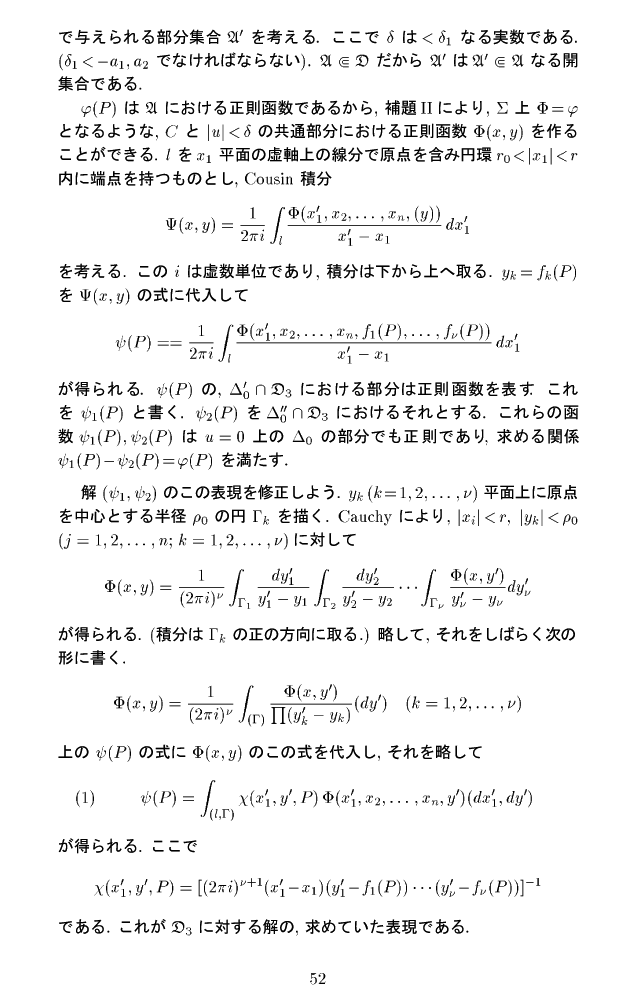 で与えられる部分集合 𝔄′ を考える. ここで δ は < δ₁ なる実数である.
(δ₁ < −a₁, a₂ でなければならない). 𝔄 ⋐ 𝔇 だから 𝔄′ は 𝔄′ ⋐ 𝔄 なる開
集合である.
φ(P) は 𝔄 における正則函数であるから, 補題 II により, Σ 上 Φ = φ
となるような, C と |u| < δ の共通部分における正則函数 Φ(x, y) を作る
ことができる. l を x₁ 平面の虚軸上の線分で原点を含み円環 r₀ < |x₁| < r
内に端点を持つものとし, Cousin 積分
Ψ(x, y) = \frac{1}{2πi} ∫_l \frac{Φ(x′₁, x₂, . . . , xₙ, (y))}{x′₁ − x₁} dx′₁
を考える. この i は虚数単位であり, 積分は下から上へ取る. y_k = f_k(P)
を Ψ(x, y) の式に代入して
ψ(P) == \frac{1}{2πi} ∫_l \frac{Φ(x′₁, x₂, . . . , xₙ, f₁(P), . . . , f_ν(P))}{x′₁ − x₁} dx′₁
が得られる. ψ(P) の, Δ′₀ ∩ 𝔇₃ における部分は正則函数を表す. これ
を ψ₁(P) と書く. ψ₂(P) を Δ″₀ ∩ 𝔇₃ におけるそれとする. これらの函
数 ψ₁(P), ψ₂(P) は u = 0 上の Δ₀ の部分でも正則であり, 求める関係
ψ₁(P) − ψ₂(P) = φ(P) を満たす.
解 (ψ₁, ψ₂) のこの表現を修正しよう. y_k (k = 1, 2, . . . , ν) 平面上に原点
を中心とする半径 ρ₀ の円 Γ_k を描く. Cauchy により, |x_i| < r, |y_k| < ρ₀
(j = 1, 2, . . . , n; k = 1, 2, . . . , ν) に対して
Φ(x, y) = \frac{1}{(2πi)^ν} ∫_{Γ₁} \frac{dy′₁}{y′₁ − y₁} ∫_{Γ₂} \frac{dy′₂}{y′₂ − y₂} · · · ∫_{Γ_ν} \frac{Φ(x, y′)}{y′_ν − y_ν} dy′_ν
が得られる. (積分は Γ_k の正の方向に取る.) 略して, それをしばらく次の
形に書く.
Φ(x, y) = \frac{1}{(2πi)^ν} ∫_{(Γ)} \frac{Φ(x, y′)}{∏(y′_k − y_k)} (dy′) (k = 1, 2, . . . , ν)
上の ψ(P) の式に Φ(x, y) のこの式を代入し, それを略して
(1) ψ(P) = ∫_{(l,Γ)} χ(x′₁, y′, P) Φ(x′₁, x₂, . . . , xₙ, y′)(dx′₁, dy′)
が得られる. ここで
χ(x′₁, y′, P) = [(2πi)^{ν+1}(x′₁ − x₁)(y′₁ − f₁(P)) · · · (y′_ν − f_ν(P))]^{−1}
である. これが 𝔇₃ に対する解の, 求めていた表現である.
52